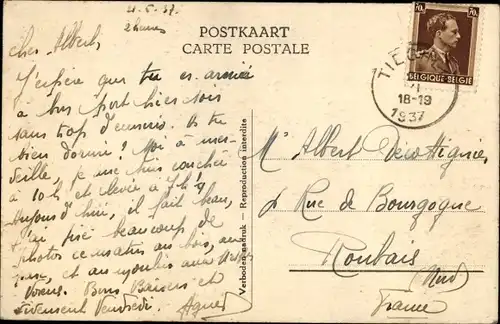 21.5.37.
2 heures
POSTKAART
CARTE POSTALE
Cher Albert,
J'espère que tu es arrivé
à bon port hier soir
sans trop d'ennuis. As tu
bien dormi? Moi à mer-
veille, je me suis couchée
à 10 h et levée à 7 h
aujourd'hui, il fait beau,
j'ai pris beaucoup de
photos ce matin au bois, au
parc, et au moulin avec
Bons Baisers et
vivement Vendredi. Agnès
Verboden nadruk – Reproduction interdite
70c 70c
BELGIQUE-BELGIË
TIEG
18-19
1937
Mr Albert
Rue de Bourgogne
Roubaix
(Nord)
France